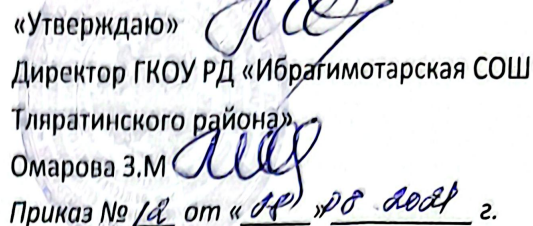 «Утверждаю»
Директор ГКОУ РД «Ибрагимотарская СОШ
Тляратинского района»
Омарова З.М
Приказ № 12 от « » 08 2021 г.